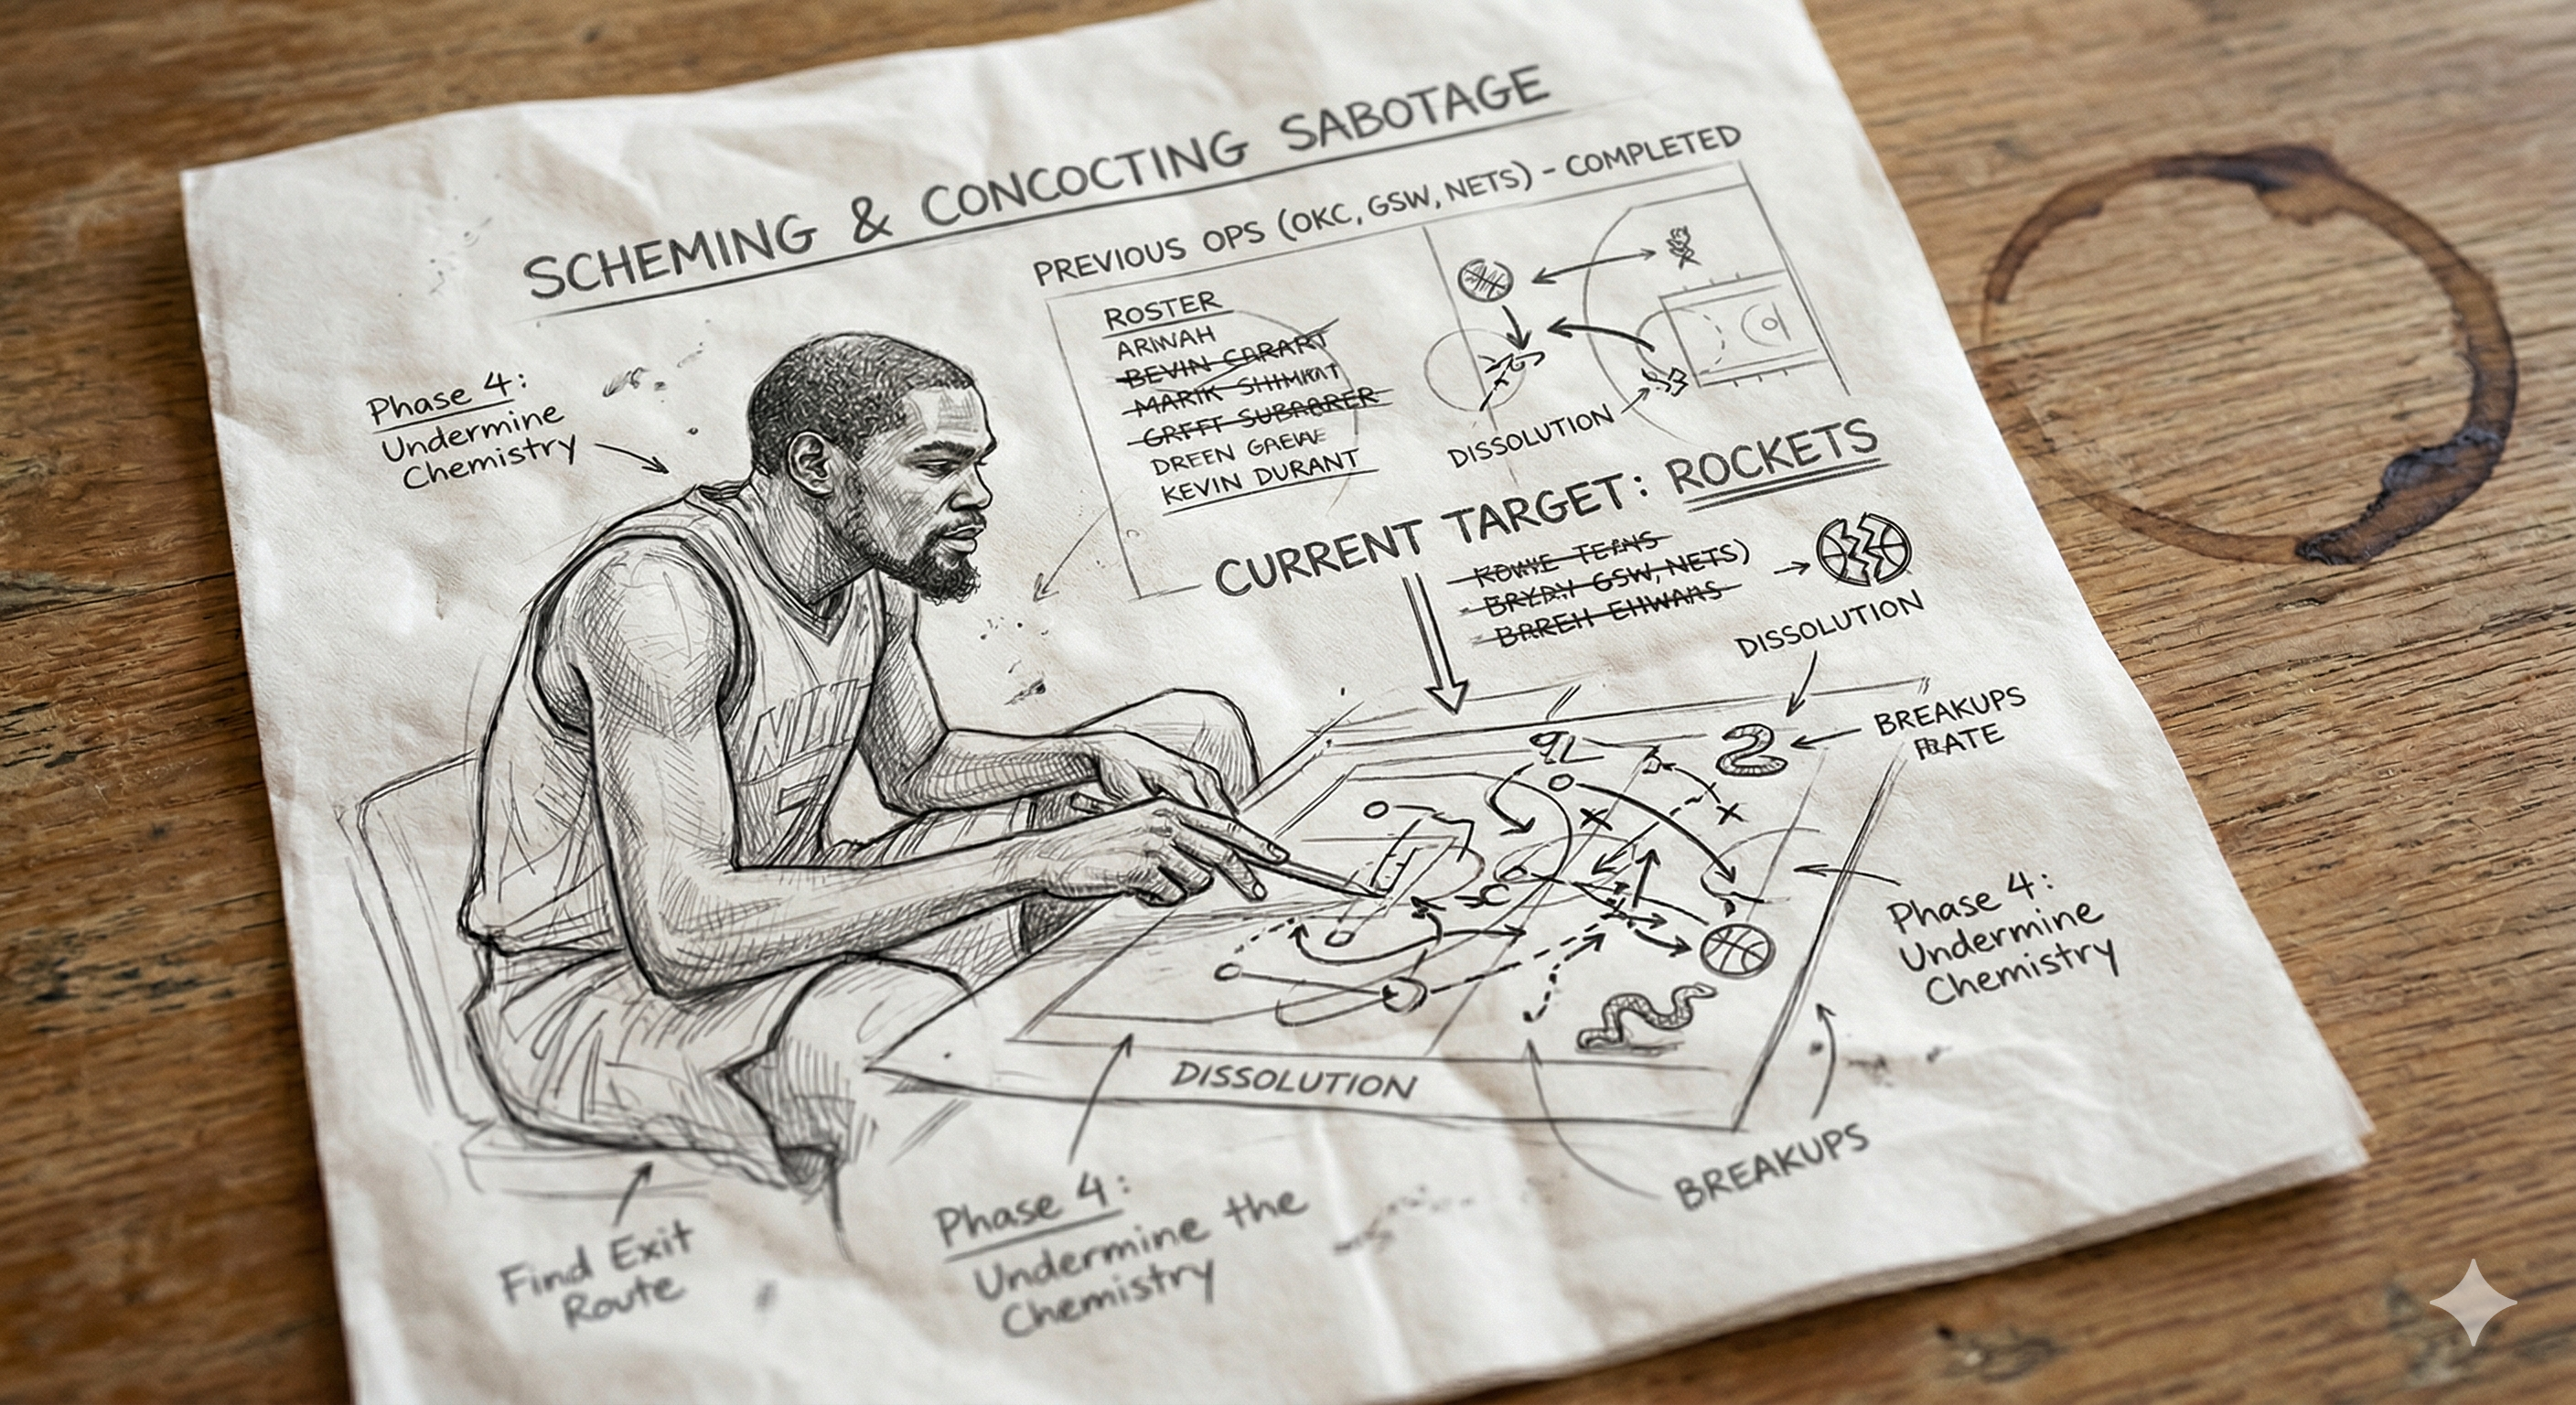 SCHEMING & CONCOCTING SABOTAGE
PREVIOUS OPS (OKC, GSW, NETS) - COMPLETED
ROSTER
ARIWAH
BEVIN CARART
MARIK SHIMKAT
GRFFT SUBARARER
DREEN GAEWE
KEVIN DURANT
DISSOLUTION
Phase 4:
Undermine
Chemistry
CURRENT TARGET: ROCKETS
BRYDY GSW, NETS)
BAREH EHWAMS
DISSOLUTION
BREAKUPS
Phase 4:
Undermine
Chemistry
DISSOLUTION
BREAKUPS
Phase 4:
Undermine the
Chemistry
Find Exit
Route